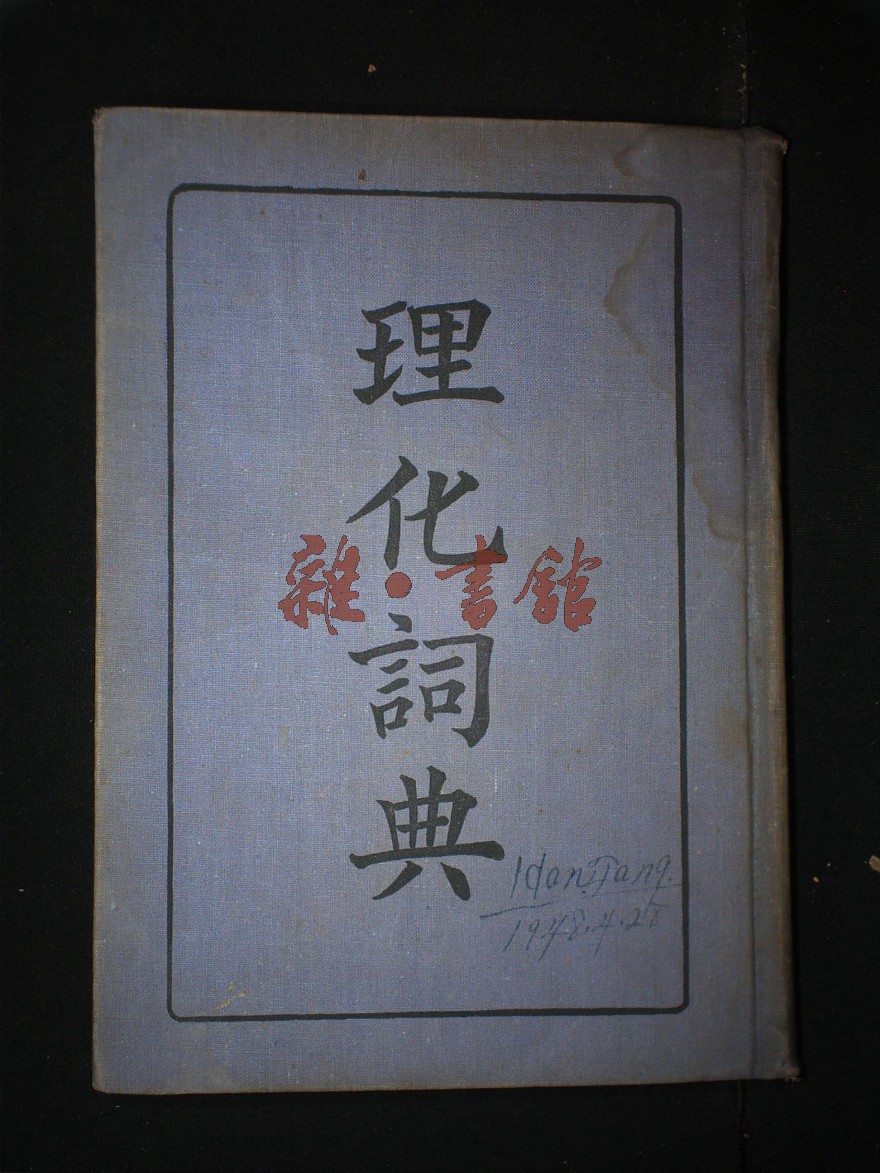 理化詞典
雜·書館
Han Tang.
1948.4.28